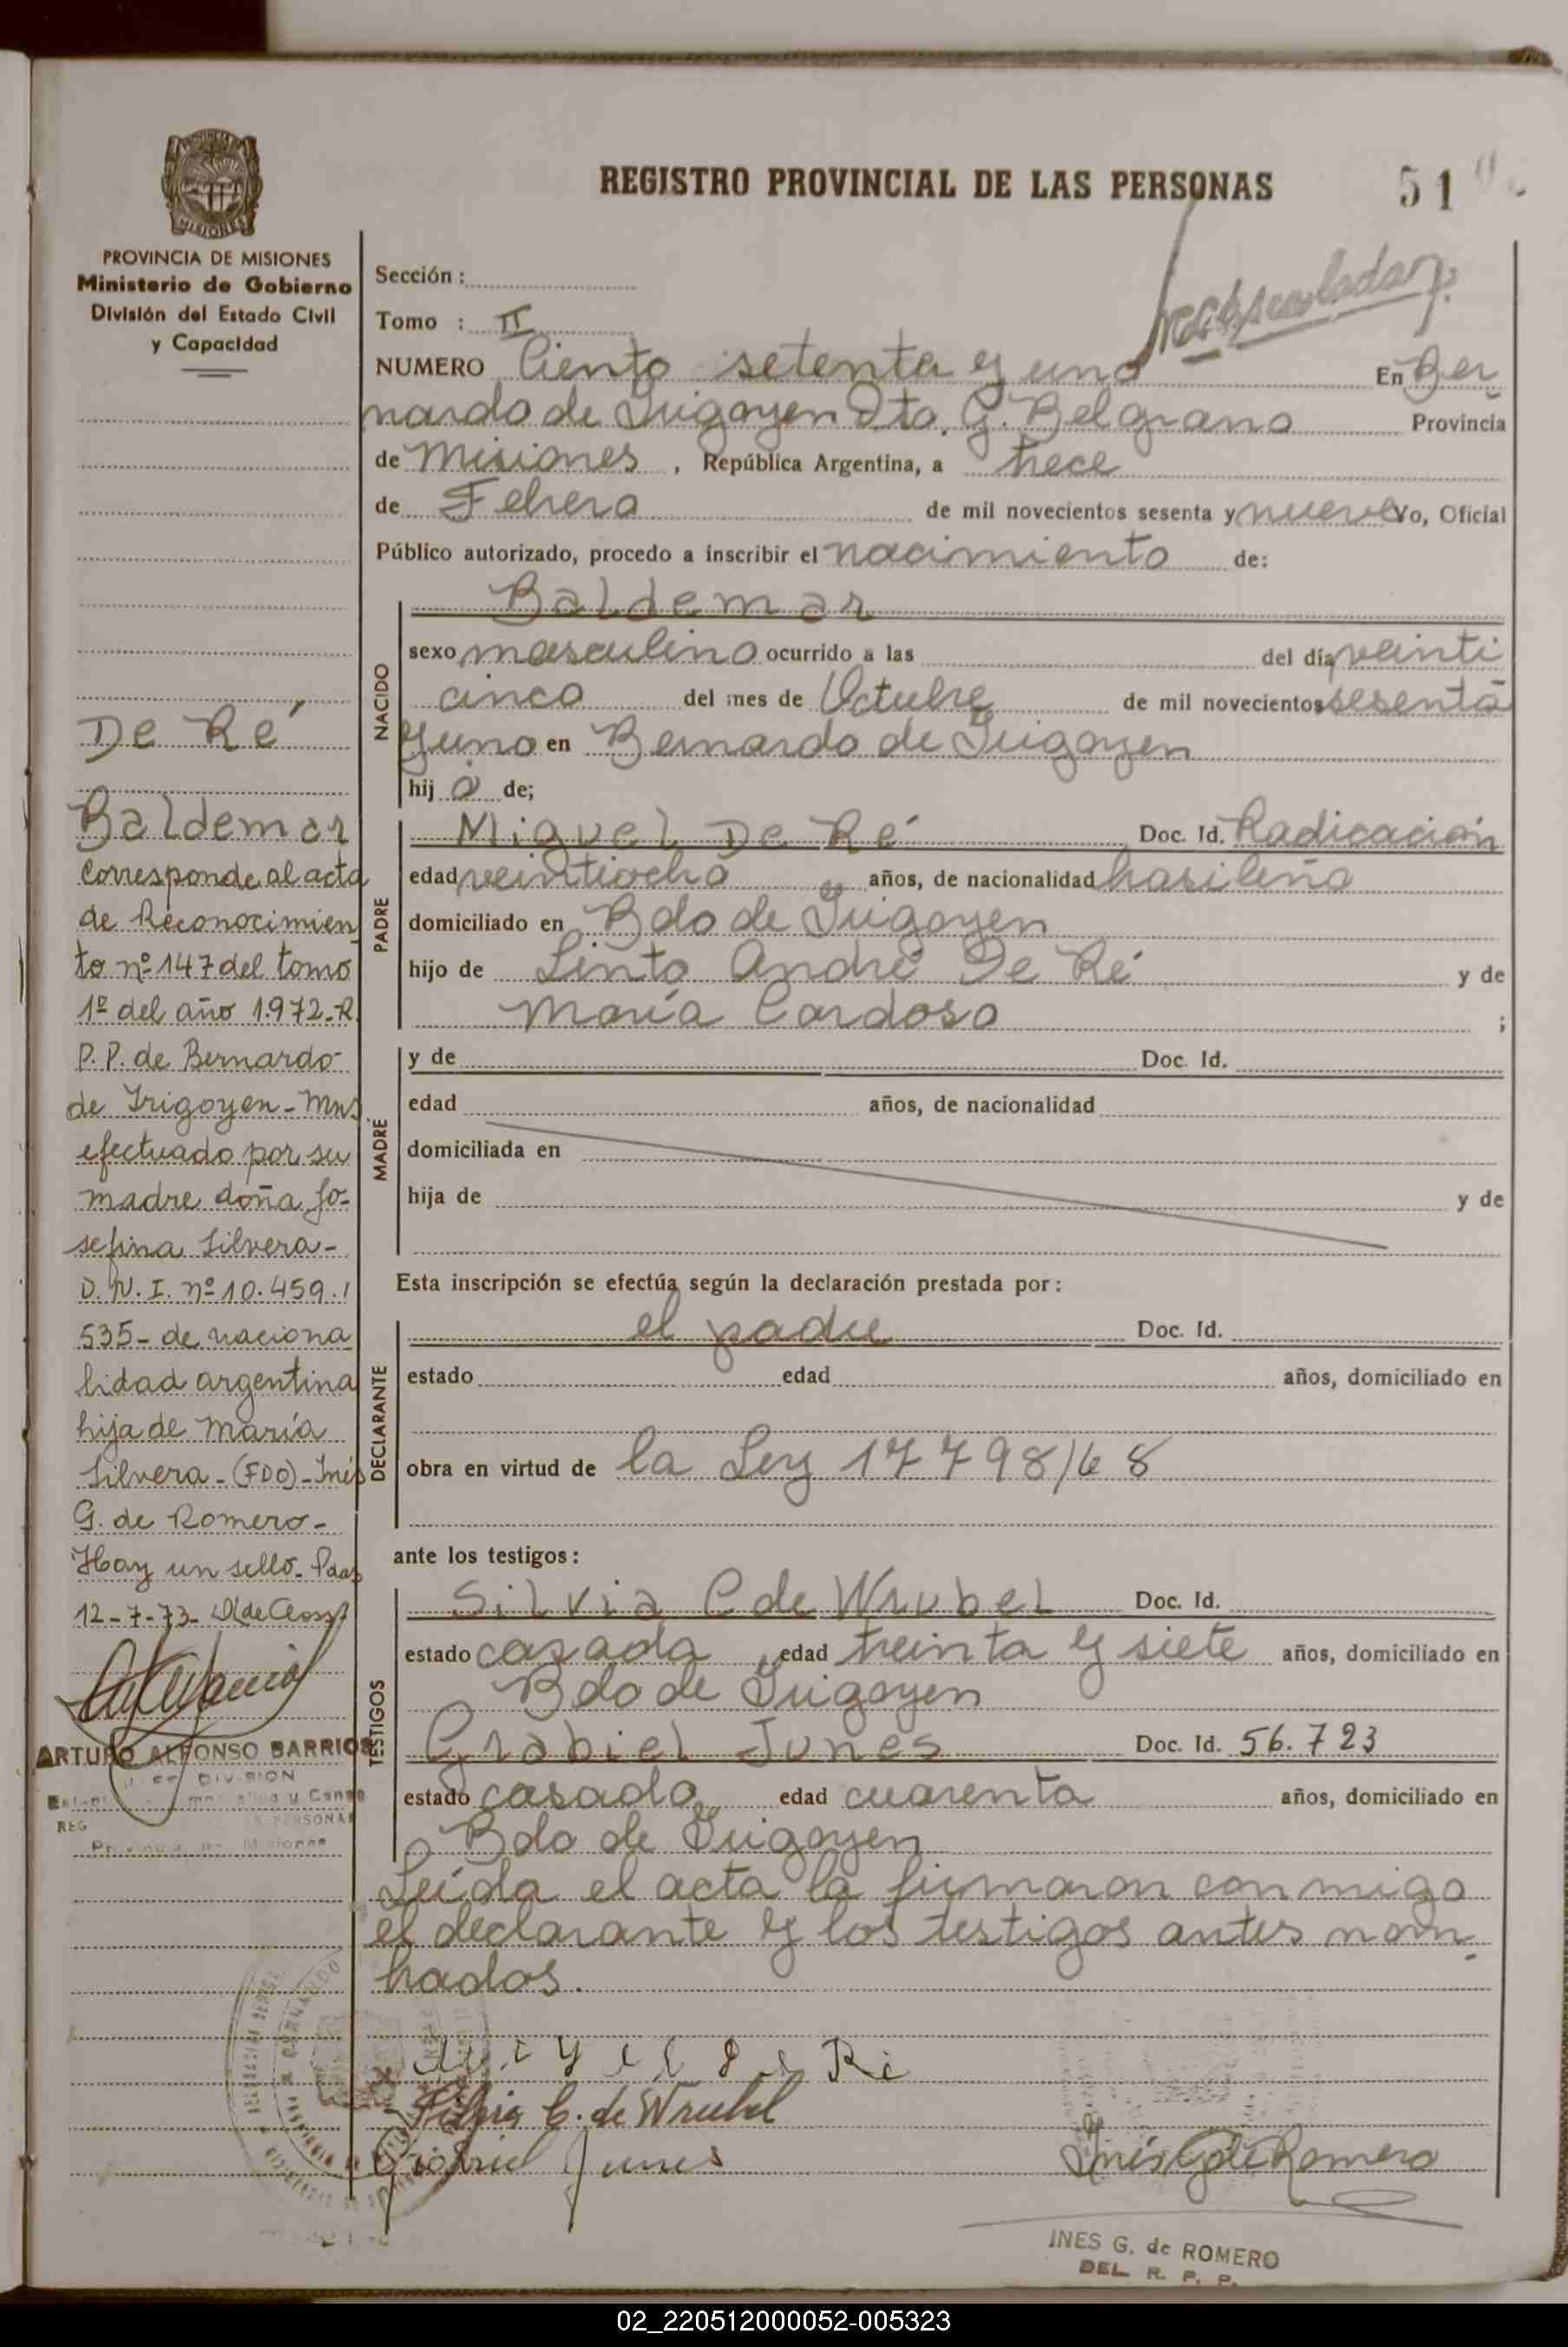 REGISTRO PROVINCIAL DE LAS PERSONAS
51
PROVINCIA DE MISIONES
Ministerio de Gobierno
División del Estado Civil
y Capacidad
Sección :
Tomo : II
NUMERO Ciento setenta y uno En Ber
nardo de Irigoyen Dto. G. Belgrano Provincia
de Misiones , República Argentina, a trece
de Febrero de mil novecientos sesenta y nueve Yo, Oficial
Público autorizado, procedo a inscribir el nacimiento de:
NACIDO
Baldemar
sexo masculino ocurrido a las del día veinti
cinco del mes de Octubre de mil novecientos sesenta
y uno en Bernardo de Irigoyen
hij o de;
PADRE
Miguel De Ré Doc. Id. Radicación
edad veintiocho años, de nacionalidad brasileño
domiciliado en Bdo de Irigoyen
hijo de Sinto André De Ré y de
María Cardoso ;
MADRE
y de Doc. Id.
edad años, de nacionalidad
domiciliada en
hija de y de
Esta inscripción se efectúa según la declaración prestada por :
DECLARANTE
el padre Doc. Id.
estado edad años, domiciliado en
obra en virtud de la Ley 17798/68
ante los testigos :
TESTIGOS
Silvia C de Wrubel Doc. Id.
estado casada edad treinta y siete años, domiciliado en
Bdo de Irigoyen
Grabiel Junes Doc. Id. 56.723
estado casado edad cuarenta años, domiciliado en
Bdo de Irigoyen
Leída el acta la firmaron conmigo
el declarante y los testigos antes nom
brados.
De Ré
Baldemar
Corresponde al acta
de Reconocimien
to nº 147 del tomo
1º del año 1.972-R.
P.P. de Bernardo
de Irigoyen - Mns
efectuado por su
madre doña Jo-
sefina Silvera -
D.N.I. nº 10.459.
535- de naciona
lidad argentina
hija de María
Silvera - (FDO) - Inés
G. de Romero -
Hay un sello - Pdas
12-7-73-
ARTURO ALFONSO BARRIOS
DIVISION
REG PERSONAS
Provincia de Misiones
Miguel de Ré
Silvia C. de Wrubel
Grabriel Junes
Inés G de Romero
INES G. de ROMERO
DEL. R. P. P.
02_220512000052-005323